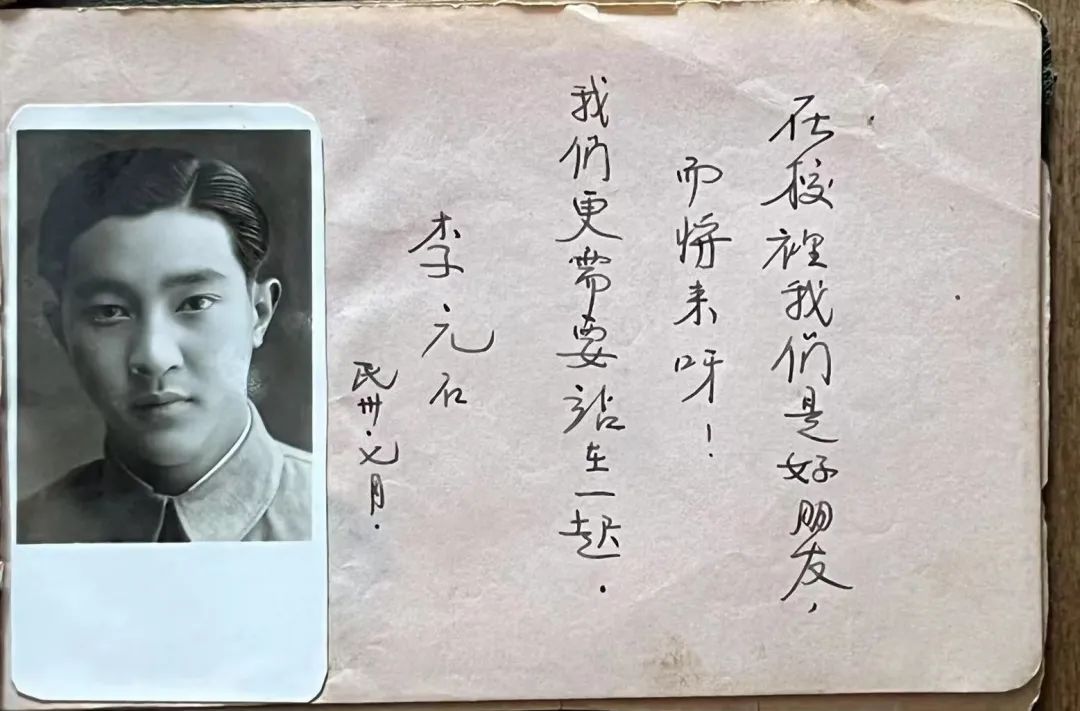 在校裡我們是好朋友，
而將来呀！
我們更需要站在一起．
李元石
民卅·七月．